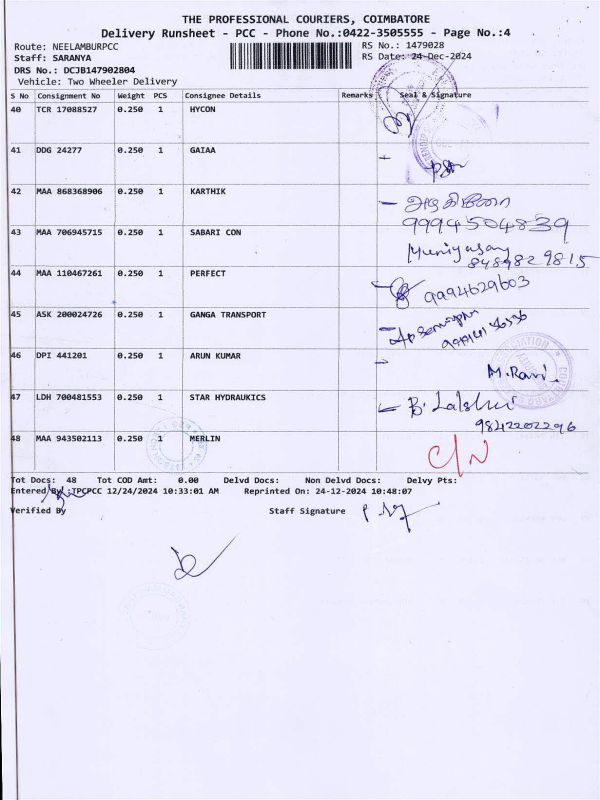 THE PROFESSIONAL COURIERS, COIMBATORE
Delivery Runsheet - PCC - Phone No.:0422-3505555 - Page No.:4
Route: NEELAMBURPCC
RS No.: 1479028
Staff: SARANYA
RS Date: 24-Dec-2024
DRS No.: DCJB147902804
Vehicle: Two Wheeler Delivery
S No Consignment No Weight PCS Consignee Details Remarks Seal & Signature
40 TCR 17088527 0.250 1 HYCON
41 DDG 24277 0.250 1 GAIAA
42 MAA 868368906 0.250 1 KARTHIK
9994504839
43 MAA 706945715 0.250 1 SABARI CON
Muniyasamy
8489829815
44 MAA 110467261 0.250 1 PERFECT
9994629603
45 ASK 200024726 0.250 1 GANGA TRANSPORT
46 DPI 441201 0.250 1 ARUN KUMAR
M. Ravi.
47 LDH 700481553 0.250 1 STAR HYDRAUKICS
9842202296
48 MAA 943502113 0.250 1 MERLIN
C/N
Tot Docs: 48 Tot COD Amt: 0.00 Delvd Docs: Non Delvd Docs: Delvy Pts:
Entered By :TPCPCC 12/24/2024 10:33:01 AM Reprinted On: 24-12-2024 10:48:07
Verified By Staff Signature